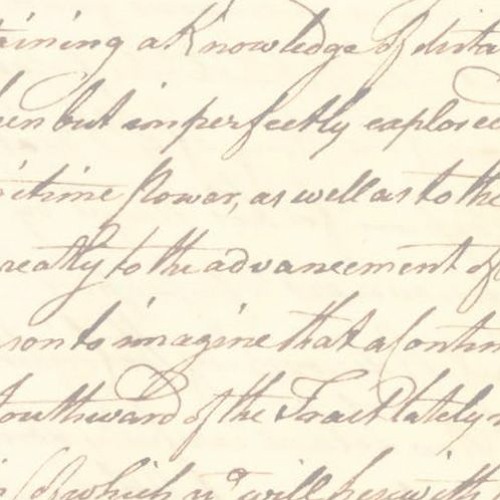 taining a Knowledge of dista
een but imperfectly explored
ritime Power, as well as to the
reatly to the advancement of
son to imagine that a Contin
Southward of the Tract lately
(of which you will herewith